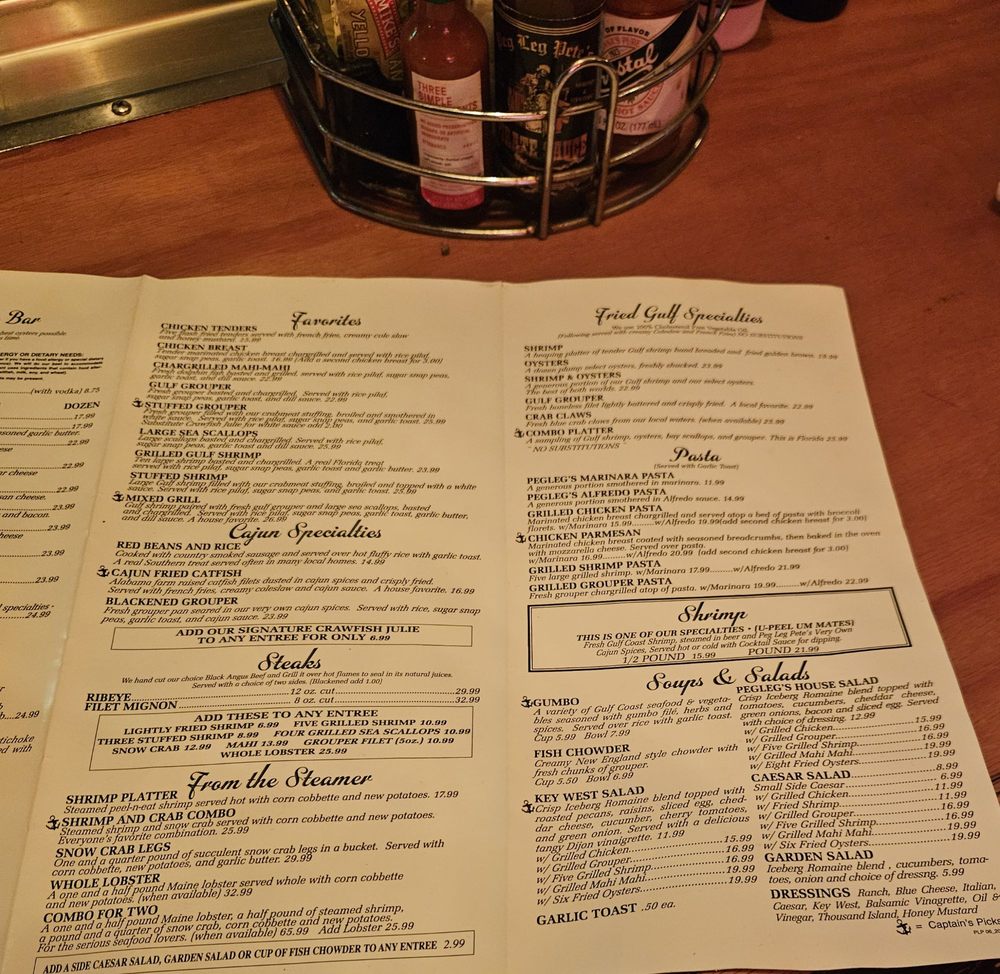 YELLO
THREE
SIMPLE
Peg Leg Pete's
OF FLAVOR
HOT SAUCE
OZ. (177 mL)
Bar
ERGY OR DIETARY NEEDS:
(with vodka) 8.75
DOZEN
17.99
17.99
soned garlic butter.
22.99
cheese
22.99
an cheese.
23.99
and bacon.
23.99
cheese
23.99
23.99
specialties -
24.99
b....24.99
artichoke
ed with
Favorites
CHICKEN TENDERS
Five fresh fried tenders served with french fries, creamy cole slaw
and honey mustard. 15.99
CHICKEN BREAST
Tender marinated chicken breast chargrilled and served with rice pilaf,
sugar snap peas, garlic toast. 16.99 (Add a second chicken breast for 3.00)
CHARGRILLED MAHI-MAHI
Fresh dolphin fish basted and grilled, served with rice pilaf, sugar snap peas,
garlic toast, and dill sauce. 22.99
GULF GROUPER
Fresh grouper basted and chargrilled. Served with rice pilaf,
sugar snap peas, garlic toast and dill sauce. 22.99
STUFFED GROUPER
Fresh grouper filled with our crabmeat stuffing, broiled and smothered in
white sauce. Served with rice pilaf, sugar snap peas, and garlic toast. 25.99
Substitute Crawfish Julie for white sauce add 2.00
LARGE SEA SCALLOPS
Large scallops basted and chargrilled. Served with rice pilaf,
sugar snap peas, garlic toast and dill sauce. 25.99
GRILLED GULF SHRIMP
Ten large shrimp basted and chargrilled. A real Florida treat
served with rice pilaf, sugar snap peas, garlic toast and garlic butter. 23.99
STUFFED SHRIMP
Large Gulf shrimp filled with our crabmeat stuffing, broiled and topped with a white
sauce. Served with rice pilaf, sugar snap peas, and garlic toast. 25.99
MIXED GRILL
Gulf shrimp paired with fresh gulf grouper and large sea scallops, basted
and chargrilled. Served with rice pilaf, sugar snap peas, garlic toast, garlic butter,
and dill sauce. A house favorite. 26.99
Cajun Specialties
RED BEANS AND RICE
Cooked with country smoked sausage and served over hot fluffy rice with garlic toast.
A real Southern treat served often in many local homes. 14.99
CAJUN FRIED CATFISH
Alabama farm raised catfish filets dusted in cajun spices and crisply fried.
Served with french fries, creamy coleslaw and cajun sauce. A house favorite. 16.99
BLACKENED GROUPER
Fresh grouper pan seared in our very own cajun spices. Served with rice, sugar snap
peas, garlic toast, and cajun sauce. 23.99
ADD OUR SIGNATURE CRAWFISH JULIE
TO ANY ENTREE FOR ONLY 6.99
Steaks
We hand cut our choice Black Angus Beef and Grill it over hot flames to seal in its natural juices.
Served with a choice of two sides. (Blackened add 1.00)
RIBEYE 12 oz. cut 29.99
FILET MIGNON 8 oz. cut 32.99
ADD THESE TO ANY ENTREE
LIGHTLY FRIED SHRIMP 6.99 FIVE GRILLED SHRIMP 10.99
THREE STUFFED SHRIMP 8.99 FOUR GRILLED SEA SCALLOPS 10.99
SNOW CRAB 12.99 MAHI 13.99 GROUPER FILET (5oz.) 10.99
WHOLE LOBSTER 25.99
From the Steamer
SHRIMP PLATTER
Steamed peel-n-eat shrimp served hot with corn cobbette and new potatoes. 17.99
SHRIMP AND CRAB COMBO
Steamed shrimp and snow crab served with corn cobbette and new potatoes.
Everyone's favorite combination. 25.99
SNOW CRAB LEGS
One and a quarter pound of succulent snow crab legs in a bucket. Served with
corn cobbette, new potatoes, and garlic butter. 29.99
WHOLE LOBSTER
A one and a half pound Maine lobster served whole with corn cobbette
and new potatoes. (when available) 32.99
COMBO FOR TWO
A one and a half pound Maine lobster, a half pound of steamed shrimp,
a pound and a quarter of snow crab, corn cobbette and new potatoes.
For the serious seafood lovers. (when available) 65.99 Add Lobster 25.99
ADD A SIDE CAESAR SALAD, GARDEN SALAD OR CUP OF FISH CHOWDER TO ANY ENTREE 2.99
Fried Gulf Specialties
We use 100% Cholesterol Free Vegetable Oil.
(Following served with creamy Coleslaw and French Fries) NO SUBSTITUTIONS
SHRIMP
A heaping platter of tender Gulf shrimp hand breaded and fried golden brown. 19.99
OYSTERS
A dozen plump select oysters, freshly shucked. 23.99
SHRIMP & OYSTERS
A generous portion of our Gulf shrimp and our select oysters.
The best of both worlds. 22.99
GULF GROUPER
Fresh boneless filet lightly battered and crisply fried. A local favorite. 22.99
CRAB CLAWS
Fresh blue crab claws from our local waters. (when available) 25.99
COMBO PLATTER
A sampling of Gulf shrimp, oysters, bay scallops, and grouper. This is Florida 25.99
" NO SUBSTITUTIONS "
Pasta
(Served with Garlic Toast)
PEGLEG'S MARINARA PASTA
A generous portion smothered in marinara. 11.99
PEGLEG'S ALFREDO PASTA
A generous portion smothered in Alfredo sauce. 14.99
GRILLED CHICKEN PASTA
Marinated chicken breast chargrilled and served atop a bed of pasta with broccoli
florets. w/Marinara 15.99........w/Alfredo 19.99(add second chicken breast for 3.00)
CHICKEN PARMESAN
Marinated chicken breast coated with seasoned breadcrumbs, then baked in the oven
with mozzarella cheese. Served over pasta.
w/Marinara 16.99.........w/Alfredo 20.99 (add second chicken breast for 3.00)
GRILLED SHRIMP PASTA
Five large grilled shrimp. w/Marinara 17.99........w/Alfredo 21.99
GRILLED GROUPER PASTA
Fresh grouper chargrilled atop of pasta. w/Marinara 19.99........w/Alfredo 22.99
Shrimp
THIS IS ONE OF OUR SPECIALTIES • (U-PEEL UM MATES)
Fresh Gulf Coast Shrimp, steamed in beer and Peg Leg Pete's Very Own
Cajun Spices, Served hot or cold with Cocktail Sauce for dipping.
1/2 POUND 15.99 POUND 21.99
Soups & Salads
GUMBO
A variety of Gulf Coast seafood & vegeta-
bles seasoned with gumbo filé, herbs and
spices. Served over rice with garlic toast.
Cup 5.99 Bowl 7.99
FISH CHOWDER
Creamy New England style chowder with
fresh chunks of grouper.
Cup 5.50 Bowl 6.99
KEY WEST SALAD
Crisp Iceberg Romaine blend topped with
roasted pecans, raisins, sliced egg, ched-
dar cheese, cucumber, cherry tomatoes,
and green onion. Served with a delicious
tangy Dijon vinaigrette. 11.99
w/ Grilled Chicken 15.99
w/ Grilled Grouper 16.99
w/ Five Grilled Shrimp 16.99
w/ Grilled Mahi Mahi 19.99
w/ Six Fried Oysters 19.99
GARLIC TOAST .50 ea.
PEGLEG'S HOUSE SALAD
Crisp Iceberg Romaine blend topped with
tomatoes, cucumbers, cheddar cheese,
green onions, bacon and sliced egg. Served
with choice of dressing. 12.99
w/ Grilled Chicken 15.99
w/ Grilled Grouper 16.99
w/ Five Grilled Shrimp 16.99
w/ Grilled Mahi Mahi 19.99
w/ Eight Fried Oysters 19.99
CAESAR SALAD 8.99
Small Side Caesar 6.99
w/ Grilled Chicken 11.99
w/ Fried Shrimp 11.99
w/ Grilled Grouper 16.99
w/ Five Grilled Shrimp 16.99
w/ Grilled Mahi Mahi 19.99
w/ Six Fried Oysters 19.99
GARDEN SALAD
Iceberg Romaine blend , cucumbers, toma-
toes, onion and choice of dressng. 5.99
DRESSINGS Ranch, Blue Cheese, Italian,
Caesar, Key West, Balsamic Vinagrette, Oil &
Vinegar, Thousand Island, Honey Mustard
= Captain's Picks